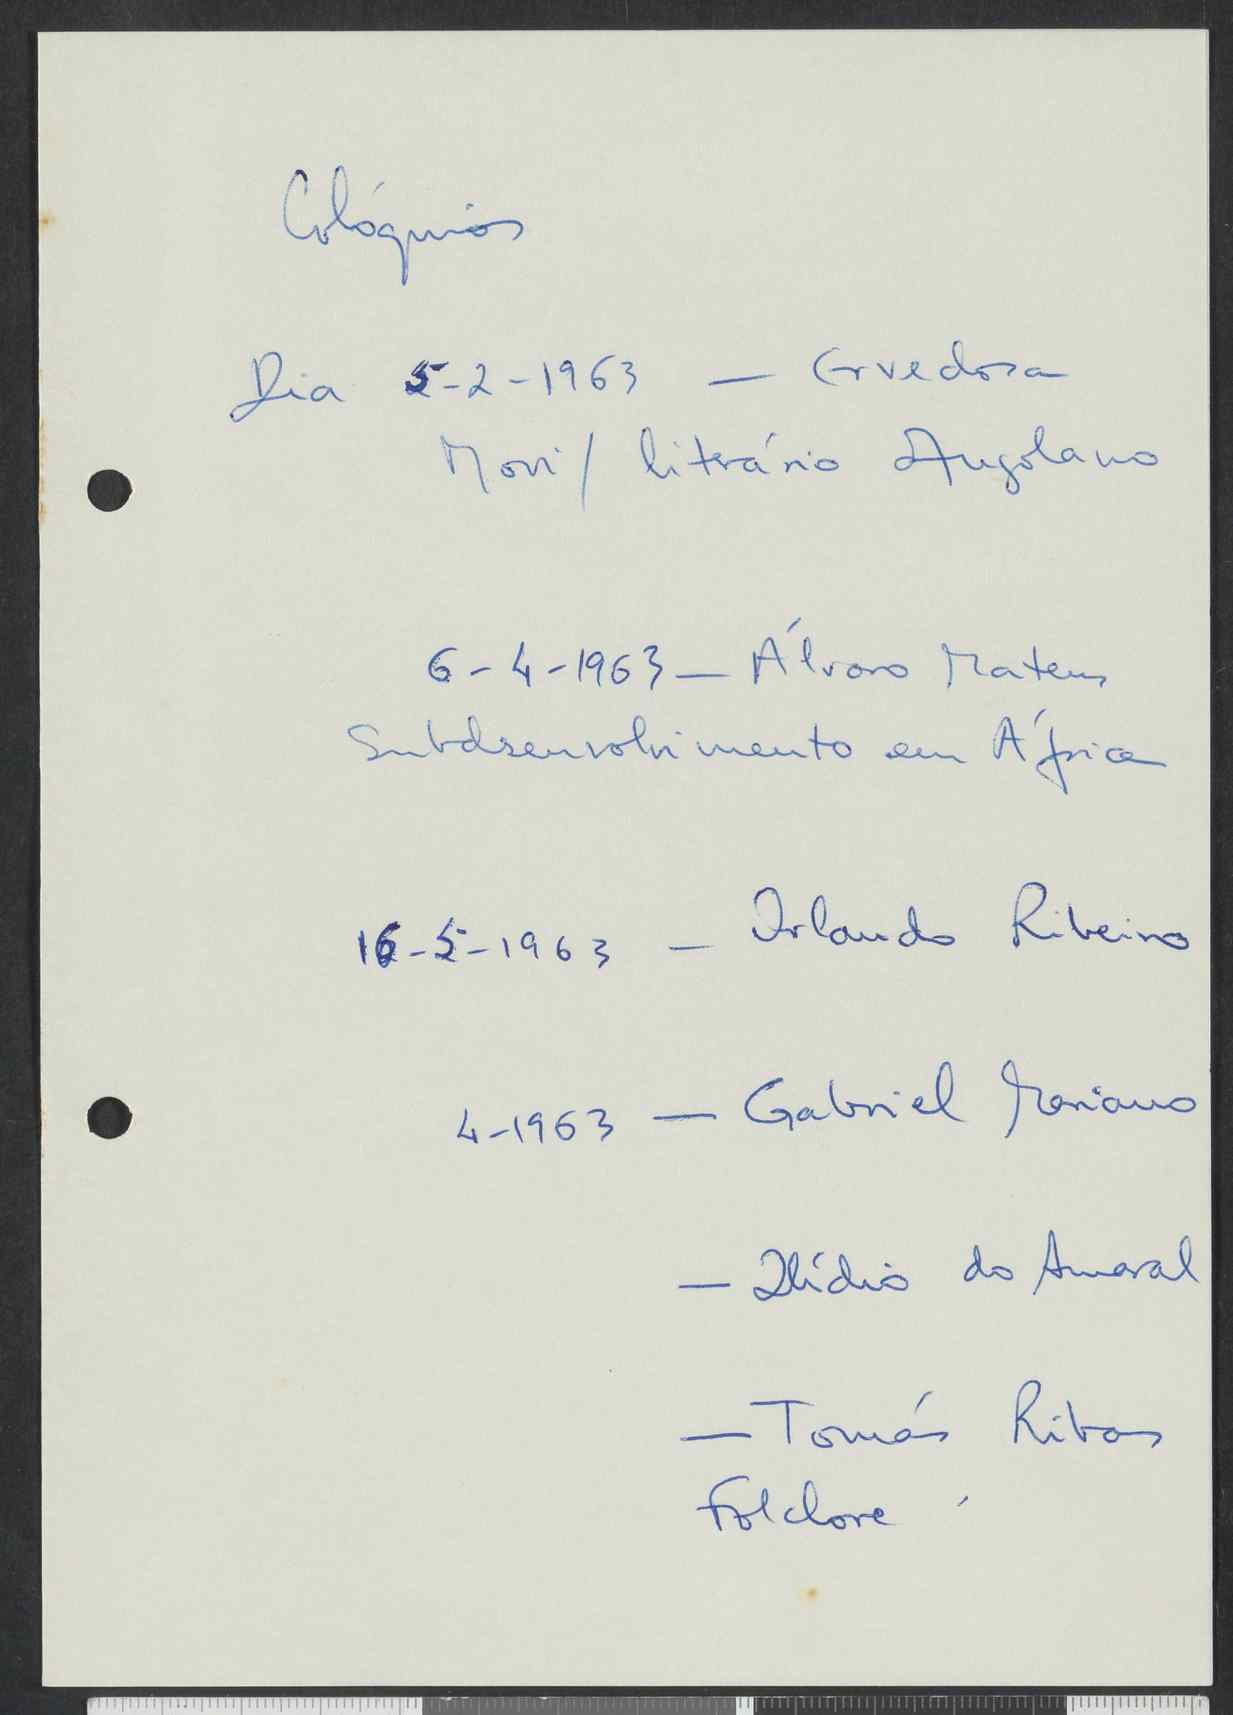 Colóquios
Dia 5-2-1963 — Ervedosa
Movi/ literário Angolano
6-4-1963 — Álvaro Mateus
Subdsenvolvimento em África
16-5-1963 — Orlando Ribeiro
4-1963 — Gabriel Mariano
— Ilídio do Amaral
— Tomás Ribas
Folclore